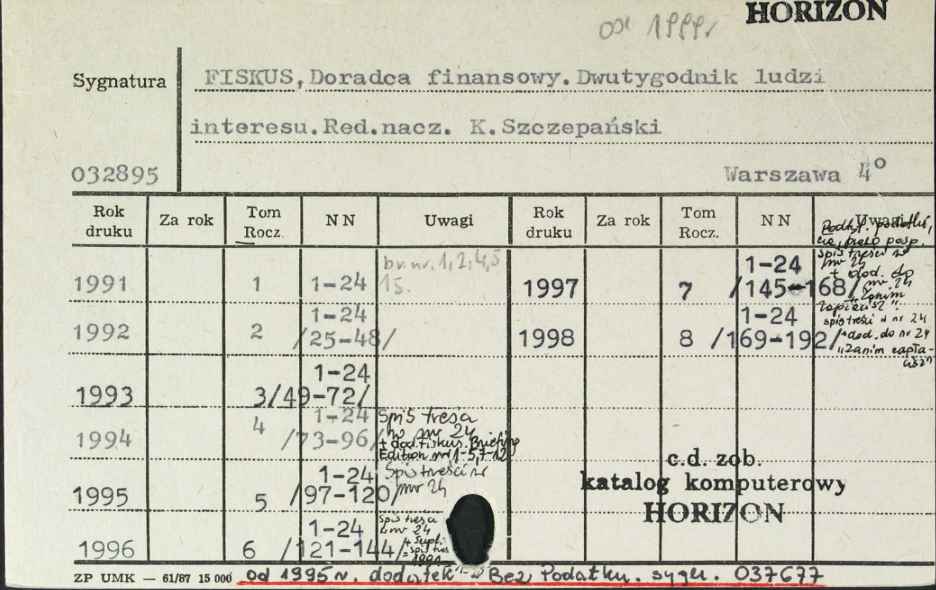 HORIZON
od 1999r
Sygnatura
FISKUS,Doradca finansowy.Dwutygodnik ludzi
interesu.Red.nacz. K.Szczepański
032895
Warszawa 4°
Rok druku Za rok Tom Rocz. N N Uwagi Rok druku Za rok Tom Rocz. N N Uwagi
1991 1 1-24 br. nr. 1,2,4,5 15. 1997 7 1-24 /145-168/ spis treści w nr 24 + dod. do nr 24
1992 2 1-24 /25-48/ 1998 8 1-24 /169-192/ spis treści w nr 24 + dod. do nr 24 "Zanim zapłacisz"
1993 3 1-24 /49-72/
1994 4 1-24 /73-96/ Spis treści w nr 24 + dod. Fiskus. Briefing Edition nr 1-5,7-12
1995 5 1-24 /97-120/ Spis treści w nr 24
1996 6 1-24 /121-144/ spis treści w nr 24
c.d. zob.
katalog komputerowy
HORIZON
ZP UMK — 61/87 15 000 od 1995 r. dodatek "Bez Podatku. sygn. 037677